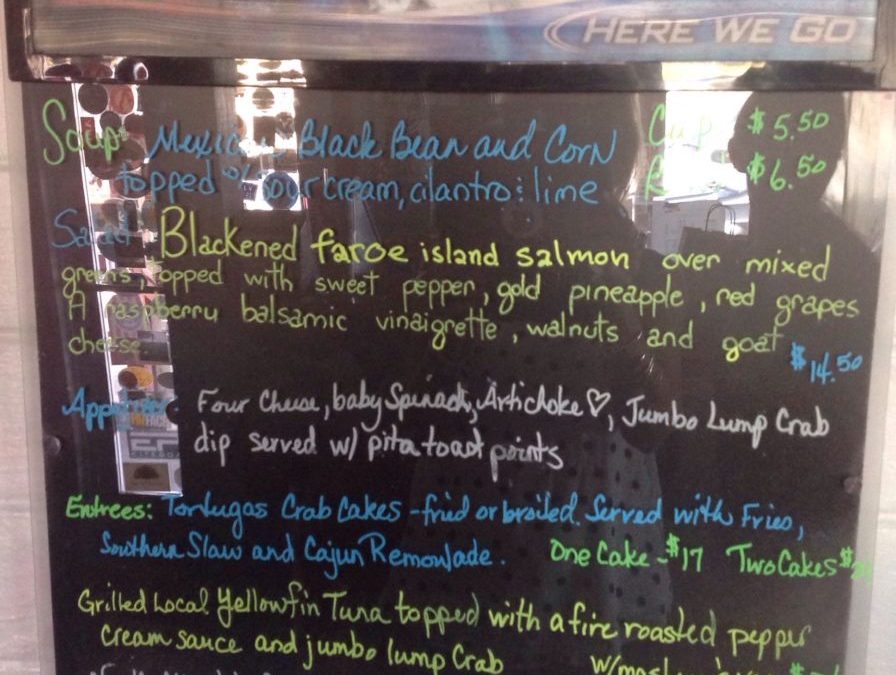 HERE WE GO
Soup: Mexican Black Bean and Corn Cup $5.50
topped w/ sour cream, cilantro & lime $6.50
Salad Blackened faroe island salmon over mixed
greens, topped with sweet pepper, gold pineapple, red grapes
A raspberry balsamic vinaigrette, walnuts and goat
cheese. $14.50
Appetiser- Four Cheese, baby Spinach, Artichoke ♡, Jumbo Lump Crab
dip served w/ pita toast points
Entrees: Tortugas Crab Cakes - fried or broiled. Served with Fries,
Southern Slaw and Cajun Remoulade. One Cake - $17 Two Cakes
Grilled Local Yellowfin Tuna topped with a fire roasted pepper
cream sauce and jumbo lump Crab